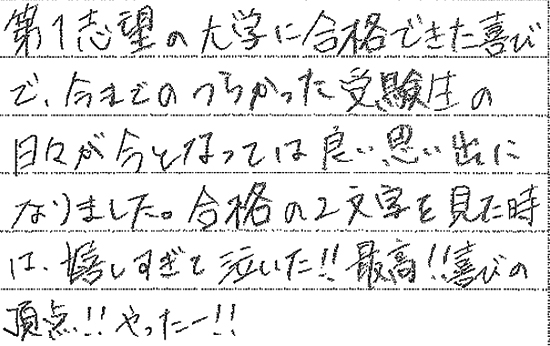 第1志望の大学に合格できた喜び
で、今までのつらかった受験生の
日々が今となっては良い思い出に
なりました。合格の2文字を見た時
は、嬉しすぎて泣いた!!最高!!喜びの
頂点!!やったー!!